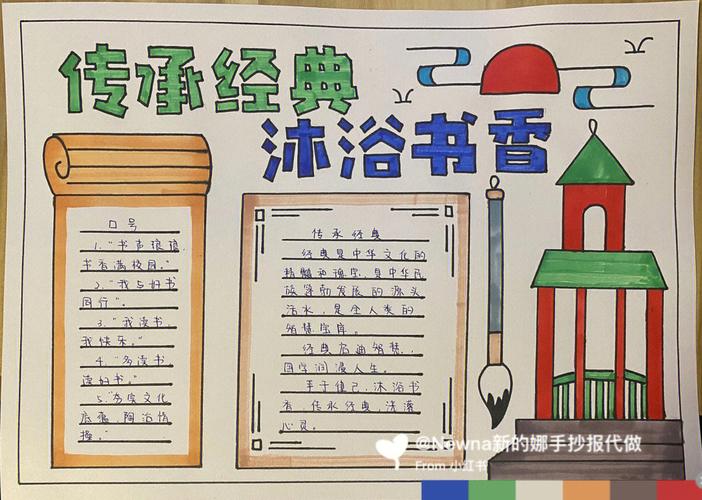 传承经典
沐浴书香
口号
1."书声琅琅,
书香满校园."
2."我与好书
同行".
3."我读书,
我快乐."
4."多读书
读好书."
5."夯实文化
底蕴,陶冶情
操."
传承经典
经典是中华文化的
精髓和瑰宝,是中华民
族蓬勃发展的源头
活水,是全人类的
智慧宝库.
经典启迪智慧,
国学润泽人生.
手于捷己,沐浴书
香,传承经典,洗涤
心灵.
@Newna新的娜手抄报代做
From 小红书